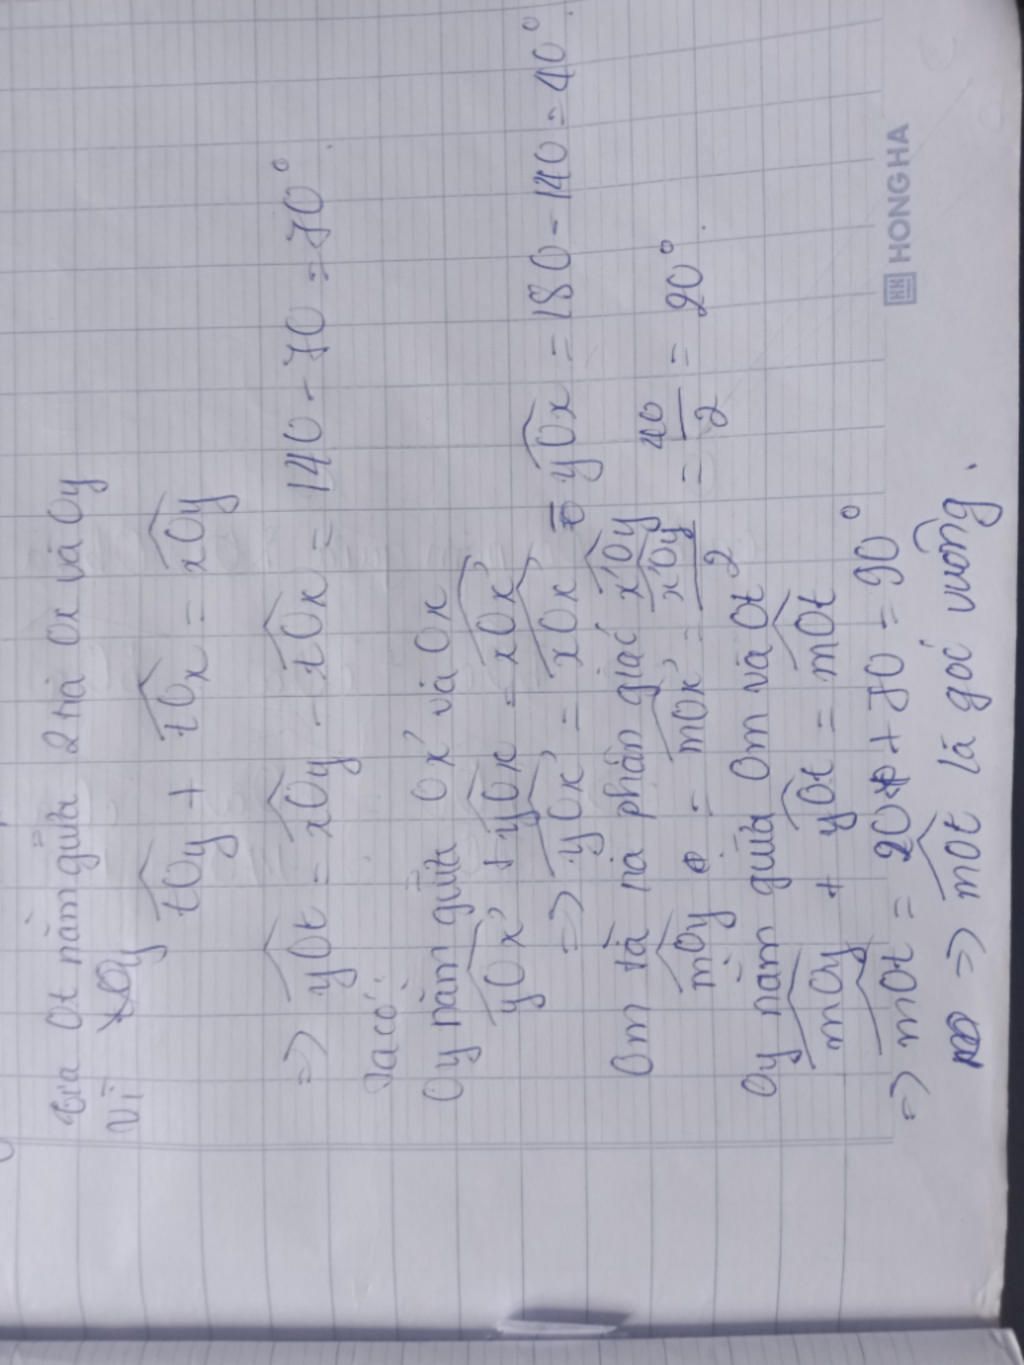 tia Ot nằm giữa 2 tia Ox và Oy
Vì
tOy + tOx = xOy
=> yOt = xOy - tOx = 140 - 70 = 70°.
Ta có:
Oy nằm giữa Ox' và Ox
yOx' + yOx = xOx'
=> yOx' = xOx' - yOx = 180 - 140 = 40°.
Om là tia phân giác x'Oy
mOy = mOx' = x'Oy/2 = 40/2 = 20°.
Oy nằm giữa Om và Ot
mOy + yOt = mOt
=> mOt = 20 + 70 = 90°
=> mOt là góc vuông.
HH HONG HA